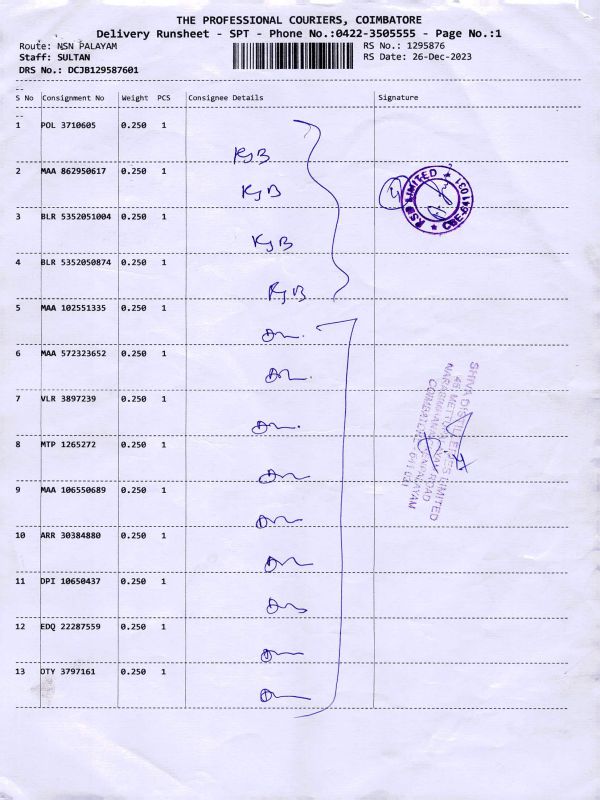 THE PROFESSIONAL COURIERS, COIMBATORE
Delivery Runsheet - SPT - Phone No.:0422-3505555 - Page No.:1
Route: NSN PALAYAM RS No.: 1295876
Staff: SULTAN RS Date: 26-Dec-2023
DRS No.: DCJB129587601
--
S No Consignment No Weight PCS Consignee Details Signature
--
1 POL 3710605 0.250 1
KJB
2 MAA 862950617 0.250 1
KJB
RSB LIMITED ★ CBE-641031 ★
3 BLR 5352051004 0.250 1
KJB
4 BLR 5352050874 0.250 1
KJB
5 MAA 102551335 0.250 1
6 MAA 572323652 0.250 1
7 VLR 3897239 0.250 1
8 MTP 1265272 0.250 1
9 MAA 106550689 0.250 1
10 ARR 30384880 0.250 1
11 DPI 10650437 0.250 1
12 EDQ 22287559 0.250 1
13 DTY 3797161 0.250 1
LIMITED
ROAD